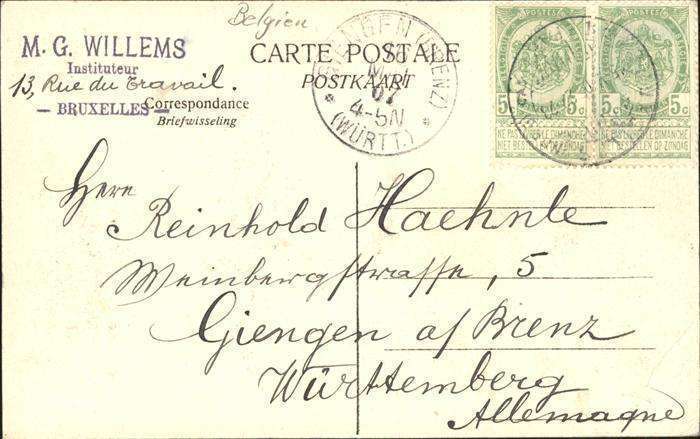 Belgien
M. G. WILLEMS
Instituteur
13, Rue du Travail.
— BRUXELLES —
CARTE POSTALE
POSTKAART
Correspondance
Briefwisseling
GIENGEN (BRENZ)
MAI
07
4-5N
(WÜRTT.)
POSTES
5c
NE PAS LIVRER LE DIMANCHE
NIET BESTELLEN OP ZONDAG
POSTES
5c
NE PAS LIVRER LE DIMANCHE
NIET BESTELLEN OP ZONDAG
Herr
Reinhold Haehnle
Weinbergstrasse, 5
Giengen a/ Brenz
Württemberg
Allemagne